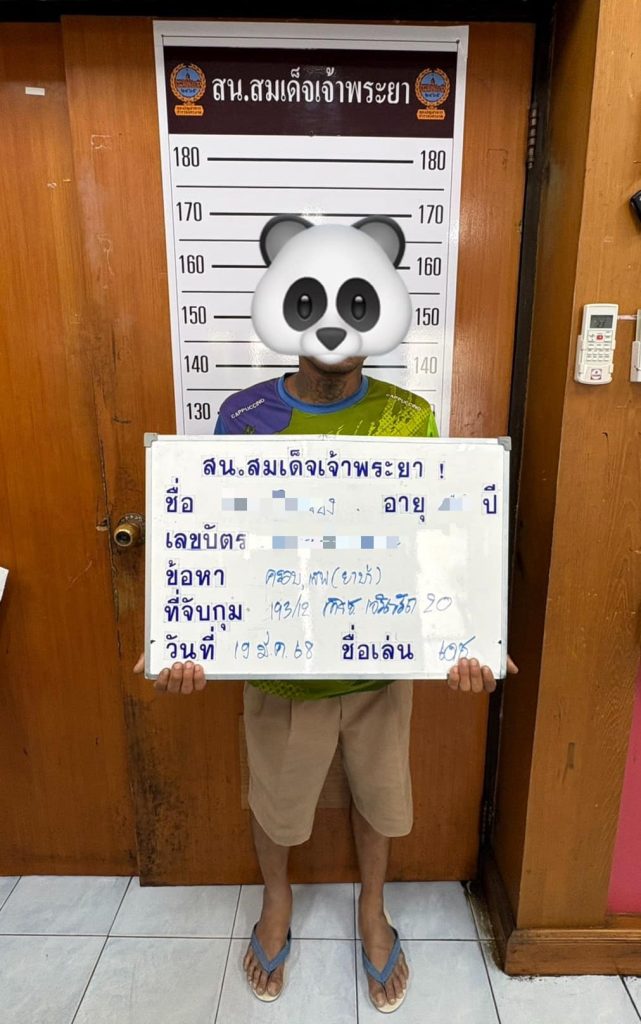 สน.สมเด็จเจ้าพระยา
180 180
170 170
160 160
150 150
140 140
130
CAPPUCCINO CAPPUCCINO
สน.สมเด็จเจ้าพระยา !
ชื่อ อายุ ปี
เลขบัตร
ข้อหา ครอบ, เสพ (ยาบ้า)
ที่จับกุม 193/12 20
วันที่ 19 มี.ค. 68 ชื่อเล่น